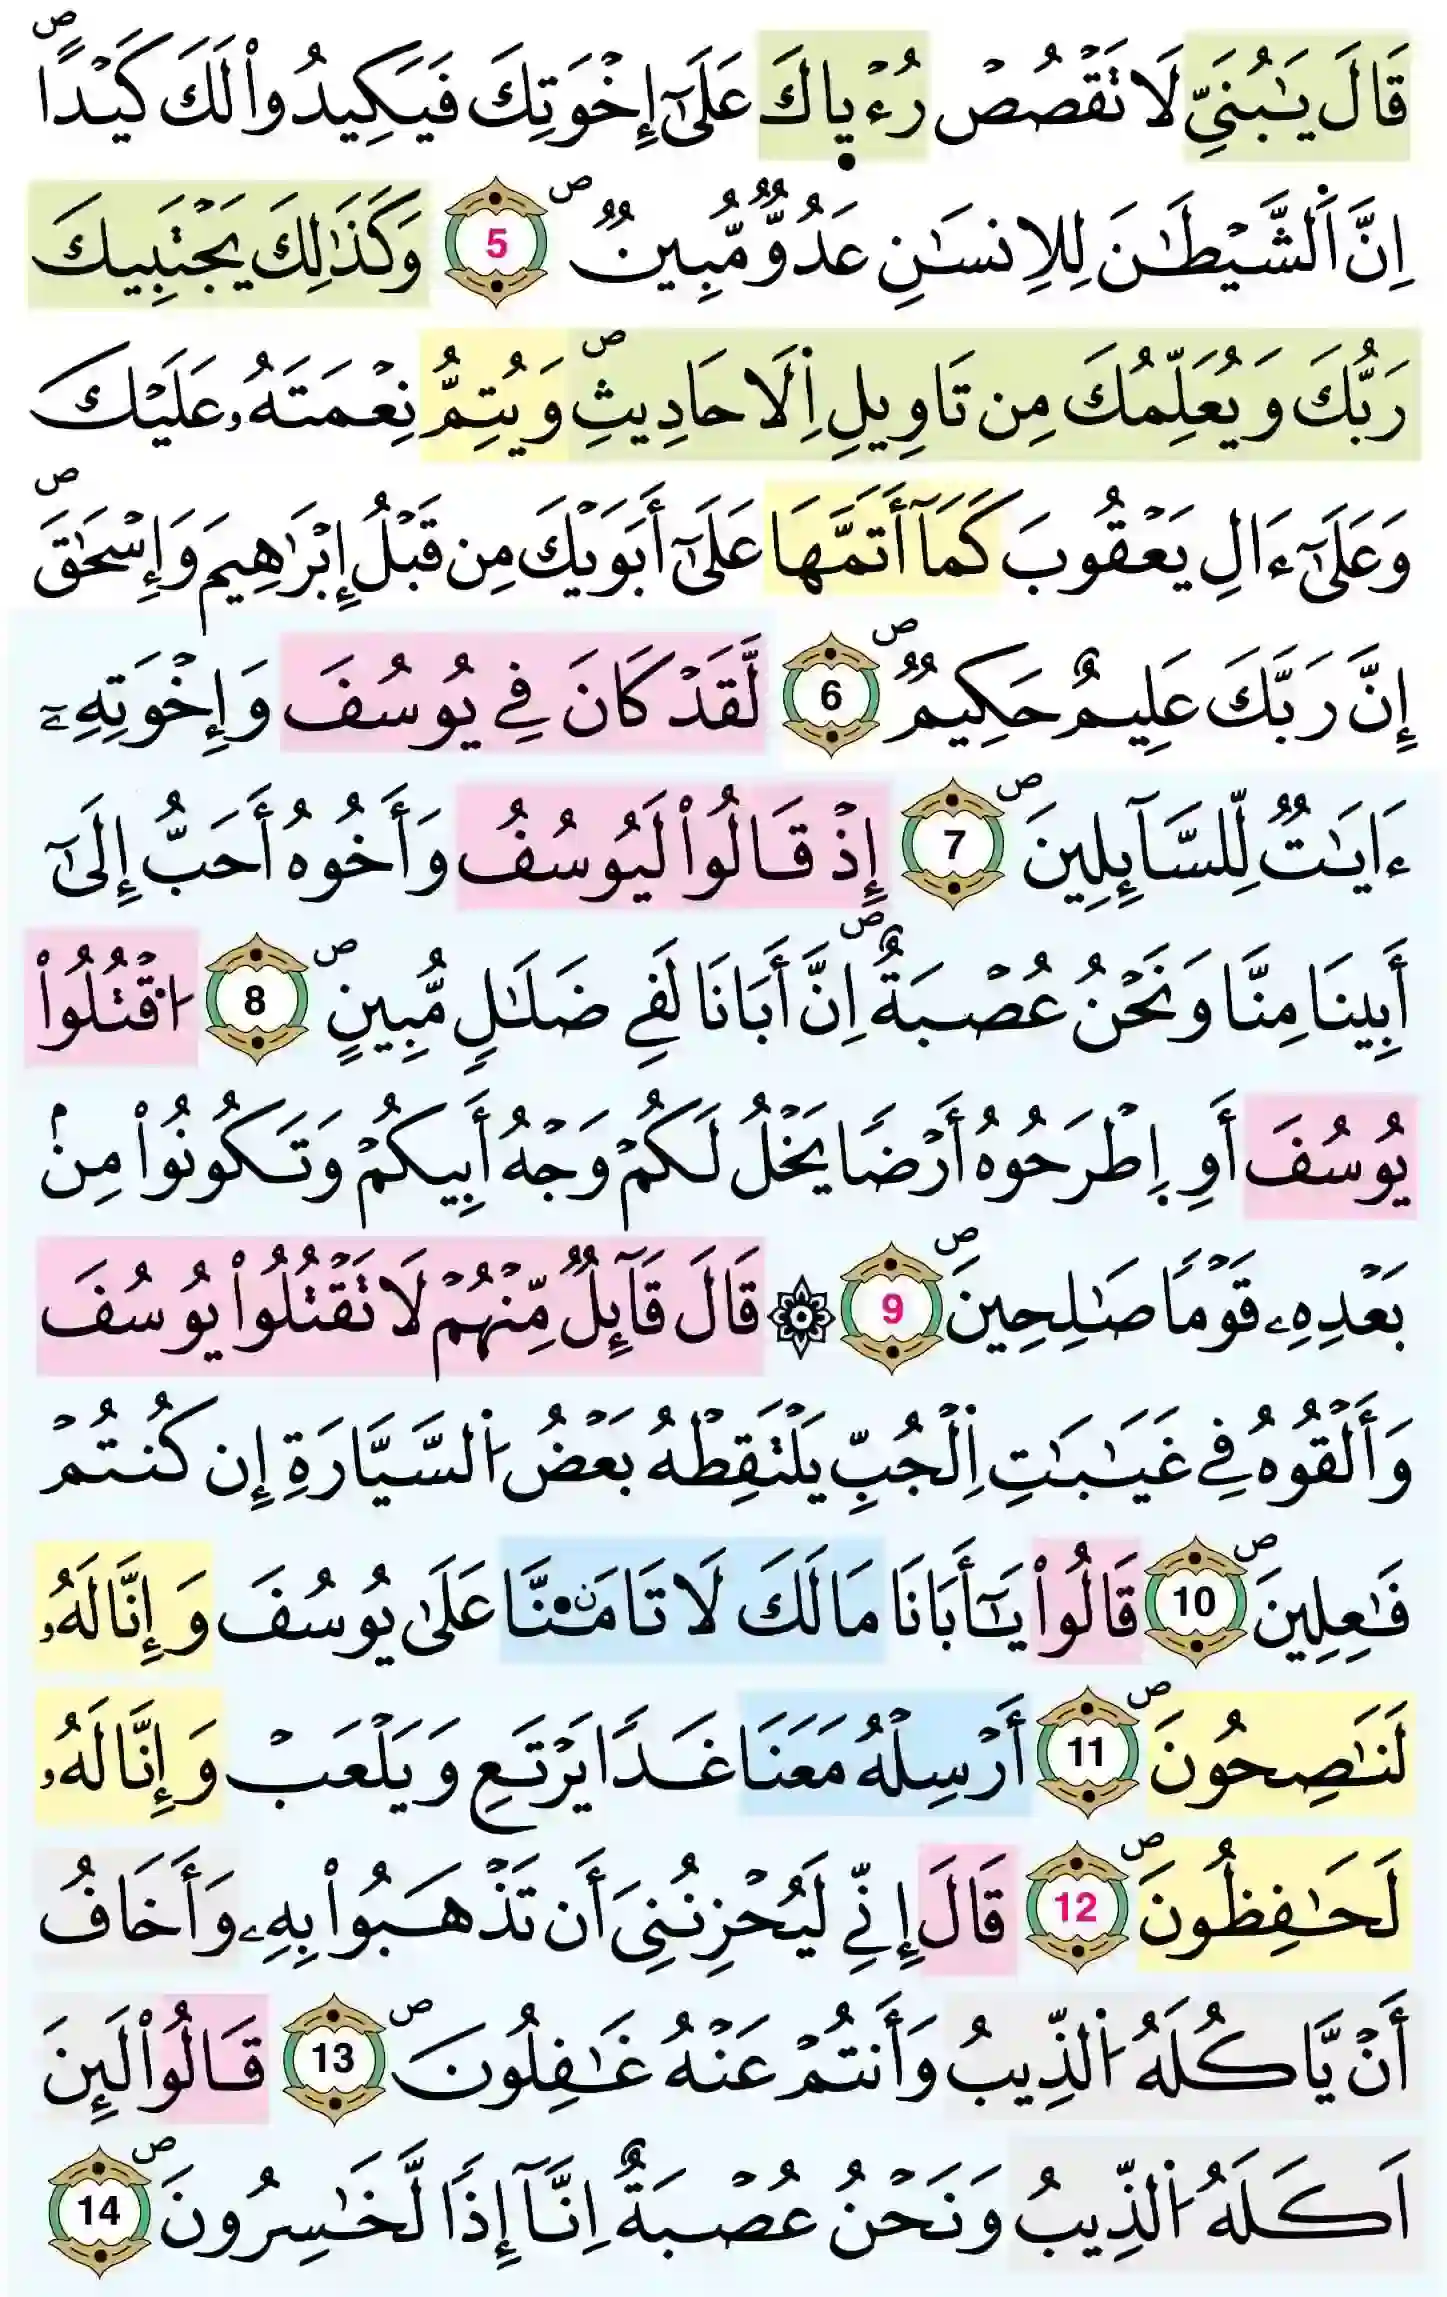 قَالَ يَٰبُنَيِّ لَا تَقْصُصْ رُءْيٜاكَ عَلَىٰٓ إِخْوَتِكَ فَيَكِيدُواْ لَكَ كَيْداًۖ
اِنَّ اَ۬لشَّيْطَٰنَ لِلِانسَٰنِ عَدُوّٞ مُّبِينٞۖ 5 وَكَذَٰلِكَ يَجْتَبِيكَ
رَبُّكَ وَيُعَلِّمُكَ مِن تَاوِيلِ اِ۬لَاحَادِيثِۖ وَيُتِمُّ نِعْمَتَهُۥ عَلَيْكَ
وَعَلَىٰٓ ءَالِ يَعْقُوبَ كَمَآ أَتَمَّهَا عَلَىٰٓ أَبَوَيْكَ مِن قَبْلُ إِبْرَٰهِيمَ وَإِسْحَٰقَۖ
إِنَّ رَبَّكَ عَلِيمٌ حَكِيمٞۖ 6 لَّقَدْ كَانَ فِے يُوسُفَ وَإِخْوَتِهِۦٓ
ءَايَٰتٞ لِّلسَّآئِلِينَۖ 7 إِذْ قَالُواْ لَيُوسُفُ وَأَخُوهُ أَحَبُّ إِلَىٰٓ
أَبِينَا مِنَّا وَنَحْنُ عُصْبَةٌۖ اِنَّ أَبَانَا لَفِے ضَلَٰلٖ مُّبِينٍۖ 8 اَ۟قْتُلُواْ
يُوسُفَ أَوِ اِ۪طْرَحُوهُ أَرْضاٗ يَخْلُ لَكُمْ وَجْهُ أَبِيكُمْ وَتَكُونُواْ مِنۢ
بَعْدِهِۦ قَوْماٗ صَٰلِحِينَۖ 9 ۞ قَالَ قَآئِلٞ مِّنْهُمْ لَا تَقْتُلُواْ يُوسُفَ
وَأَلْقُوهُ فِے غَيَٰبَٰتِ اِ۬لْجُبِّ يَلْتَقِطْهُ بَعْضُ اُ۬لسَّيَّارَةِ إِن كُنتُمْ
فَٰعِلِينَۖ 10 قَالُواْ يَٰٓأَبَانَا مَا لَكَ لَا تَامَ۬نَّا عَلَىٰ يُوسُفَ وَإِنَّا لَهُۥ
لَنَٰصِحُونَۖ 11 أَرْسِلْهُ مَعَنَا غَداٗ يَرْتَعِ وَيَلْعَبْ وَإِنَّا لَهُۥ
لَحَٰفِظُونَۖ 12 قَالَ إِنِّے لَيُحْزِنُنِيَ أَن تَذْهَبُواْ بِهِۦ وَأَخَافُ
أَنْ يَّاكُلَهُ اُ۬لذِّيبُ وَأَنتُمْ عَنْهُ غَٰفِلُونَۖ 13 قَالُواْ لَئِنَ
اَكَلَهُ اُ۬لذِّيبُ وَنَحْنُ عُصْبَةٌ اِنَّآ إِذاٗ لَّخَٰسِرُونَۖ 14